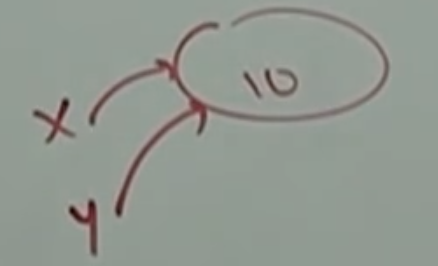 10
x
y